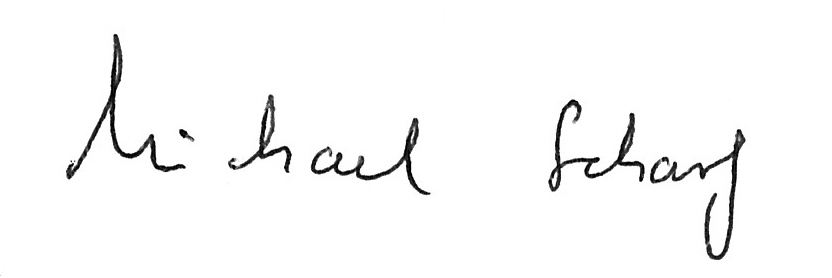 Michael Scharf